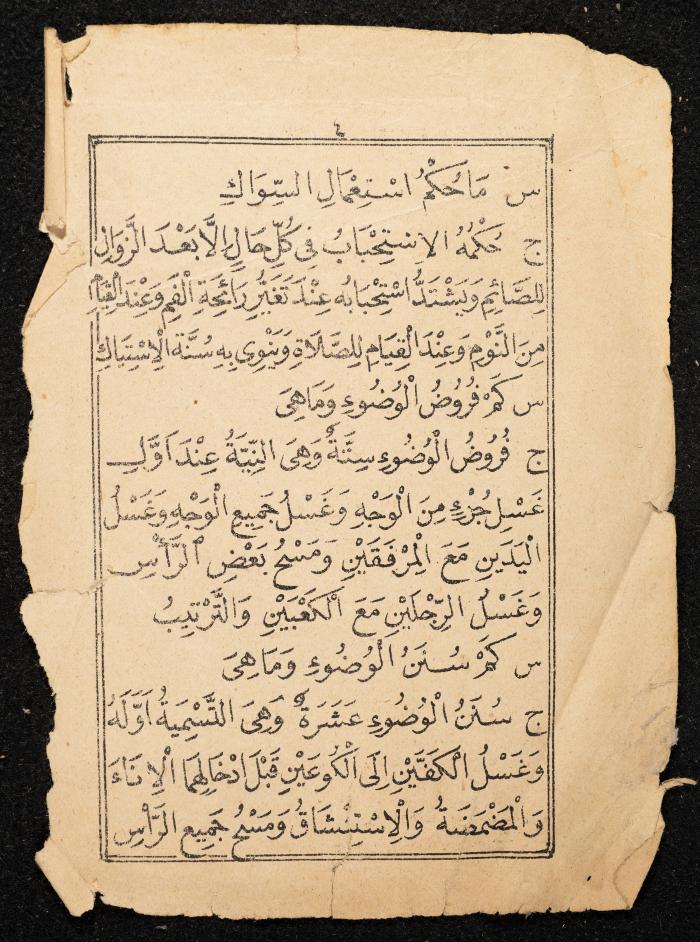 ٤
س مَا حُكْمُ اسْتِعْمَالِ السِّوَاكِ
ج حُكْمُهُ الِاسْتِحْبَابُ فِى كُلِّ حَالٍ اِلَّا بَعْدَ الزَّوَالِ
لِلصَّائِمِ وَيَشْتَدُّ اسْتِحْبَابُه عِنْدَ تَغَيُّرِ رَائِحَةِ الْفَمِ وَعِنْدَ الْقِيَامِ
مِنَ النَّوْمِ وَعِنْدَ الْقِيَامِ لِلصَّلَاةِ وَيَنْوِى بِهِ سُنَّةَ الْاِسْتِيَاكِ
س كَمْ فُرُوضُ الْوُضُوءِ وَمَا هِىَ
ج فُرُوضُ الْوُضُوءِ سِتَّةٌ وَهِىَ النِّيَّةُ عِنْدَ اَوَّلِ
غَسْلِ جُزْءٍ مِنَ الْوَجْهِ وَغَسْلُ جَمِيعِ الْوَجْهِ وَغَسْلُ
الْيَدَيْنِ مَعَ الْمِرْفَقَيْنِ وَمَسْحُ بَعْضِ الرَّأْسِ
وَغَسْلُ الرِّجْلَيْنِ مَعَ الْكَعْبَيْنِ وَالتَّرْتِيبُ
س كَمْ سُنَنُ الْوُضُوءِ وَمَا هِىَ
ج سُنَنُ الْوُضُوءِ عَشَرَةٌ وَهِىَ التَّسْمِيَةُ اَوَّلَهُ
وَغَسْلُ الْكَفَّيْنِ اِلَى الْكُوعَيْنِ قَبْلَ ادْخَالِهِمَا الْاِنَاءَ
وَالْمَضْمَضَةُ وَالْاِسْتِنْشَاقُ وَمَسْحُ جَمِيعِ الرَّأْسِ